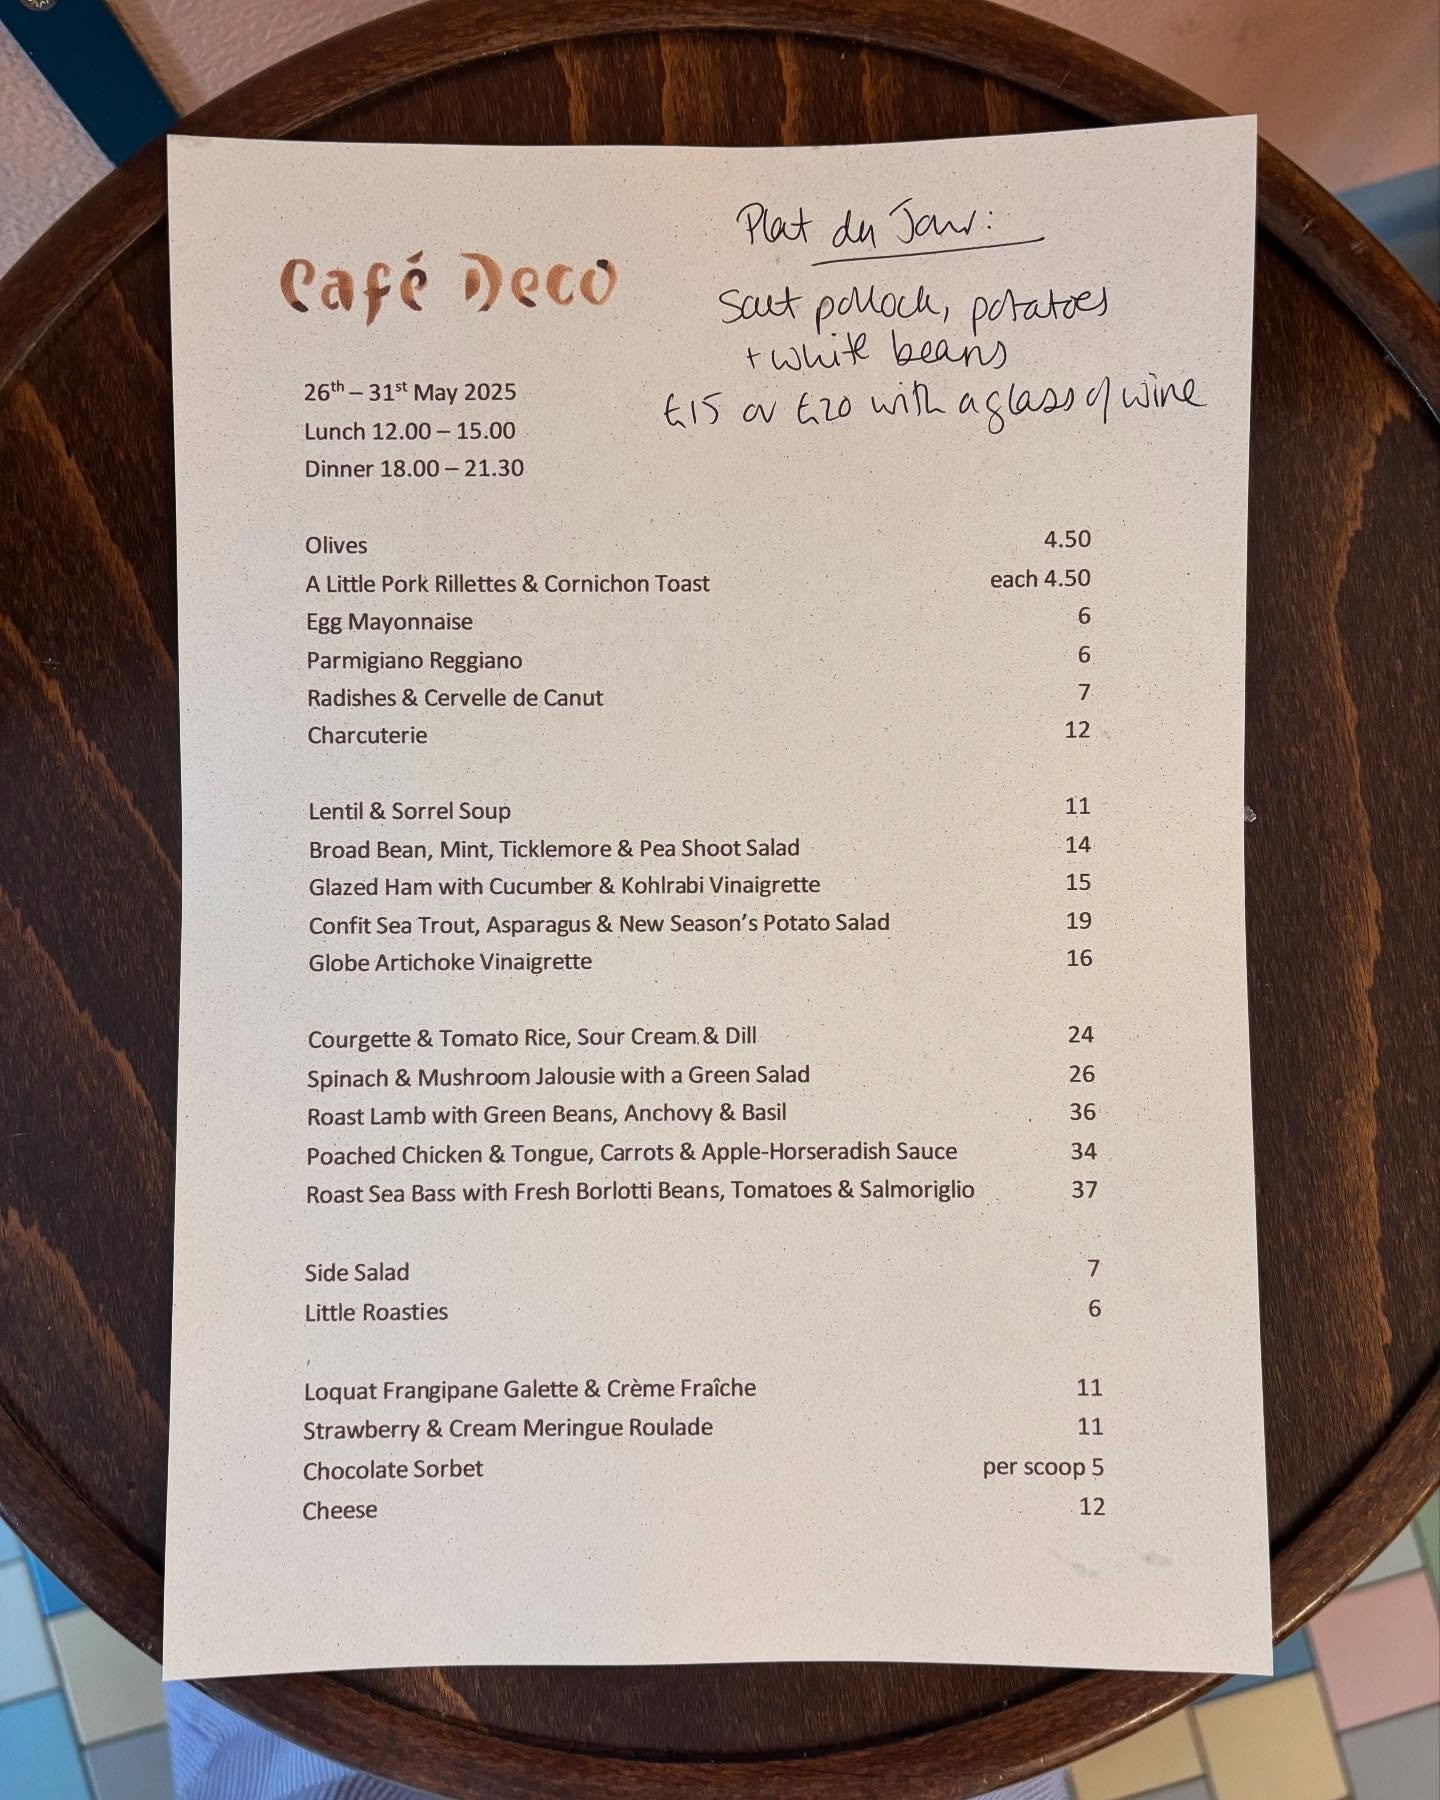 Café Deco
Plat du Jour:
Salt pollock, potatoes
+ white beans
£15 or £20 with a glass of wine
26th – 31st May 2025
Lunch 12.00 – 15.00
Dinner 18.00 – 21.30
Olives 4.50
A Little Pork Rillettes & Cornichon Toast each 4.50
Egg Mayonnaise 6
Parmigiano Reggiano 6
Radishes & Cervelle de Canut 7
Charcuterie 12
Lentil & Sorrel Soup 11
Broad Bean, Mint, Ticklemore & Pea Shoot Salad 14
Glazed Ham with Cucumber & Kohlrabi Vinaigrette 15
Confit Sea Trout, Asparagus & New Season’s Potato Salad 19
Globe Artichoke Vinaigrette 16
Courgette & Tomato Rice, Sour Cream & Dill 24
Spinach & Mushroom Jalousie with a Green Salad 26
Roast Lamb with Green Beans, Anchovy & Basil 36
Poached Chicken & Tongue, Carrots & Apple-Horseradish Sauce 34
Roast Sea Bass with Fresh Borlotti Beans, Tomatoes & Salmoriglio 37
Side Salad 7
Little Roasties 6
Loquat Frangipane Galette & Crème Fraîche 11
Strawberry & Cream Meringue Roulade 11
Chocolate Sorbet per scoop 5
Cheese 12